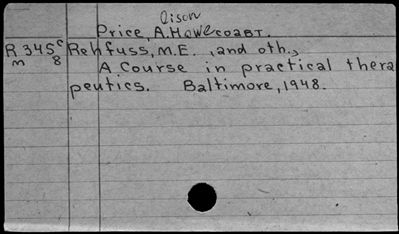 ison
Price, A. Howe соавт.
R 345c Rehfuss, M.E. , and oth.,
m 8 A Course in practical thera
peutics. Baltimore, 1948.